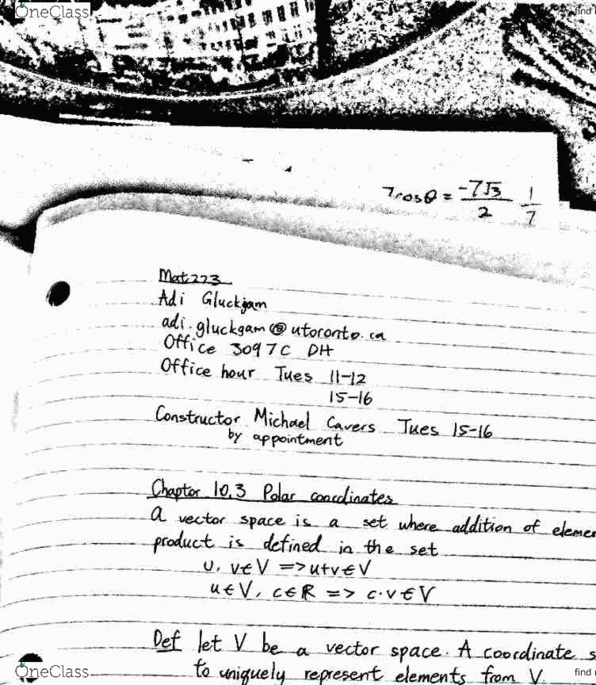 OneClass
find
7cosθ = -7√3/2 1/7
Mat223
Adi Gluckgam
adi.gluckgam@utoronto.ca
Office 3097C DH
Office hour Tues 11-12
15-16
Constructor Michael Cavers Tues 15-16
by appointment
Chapter 10.3 Polar coordinates
a vector space is a set where addition of eleme
product is defined in the set
u, v∈V => u+v∈V
u∈V, c∈R => c·v∈V
Def let V be a vector space. A coordinate s
to uniquely represent elements from V.
OneClass
find